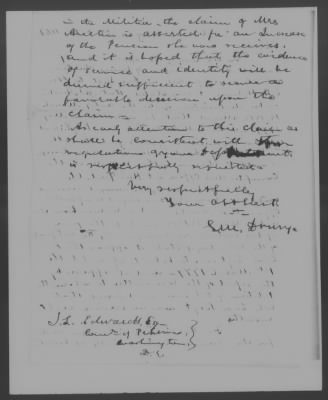 in the Militia - the claim of Mrs
is asserted for an Increase
of the Pension she now receives.
and it is hoped that the evidence
of service and identity will be
deemed sufficient to secure a
favorable decision upon the
claim -
An early attention to this claim as
shall be consistent with
regulations of your
is respectfully requested -
Very respectfully
Your Obt Servt
J. L. Edwards Esq
Comr of Pensions
Washington
D. C.